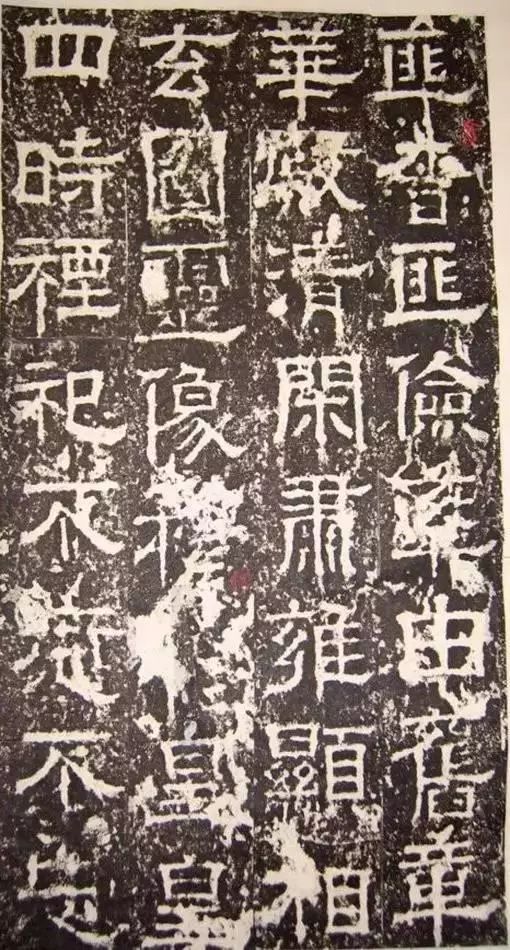 匪奢匪儉率由舊章
華殿清閑肅雍顯相
玄圖靈像穆皇皇
四時禋祀不愆不忘